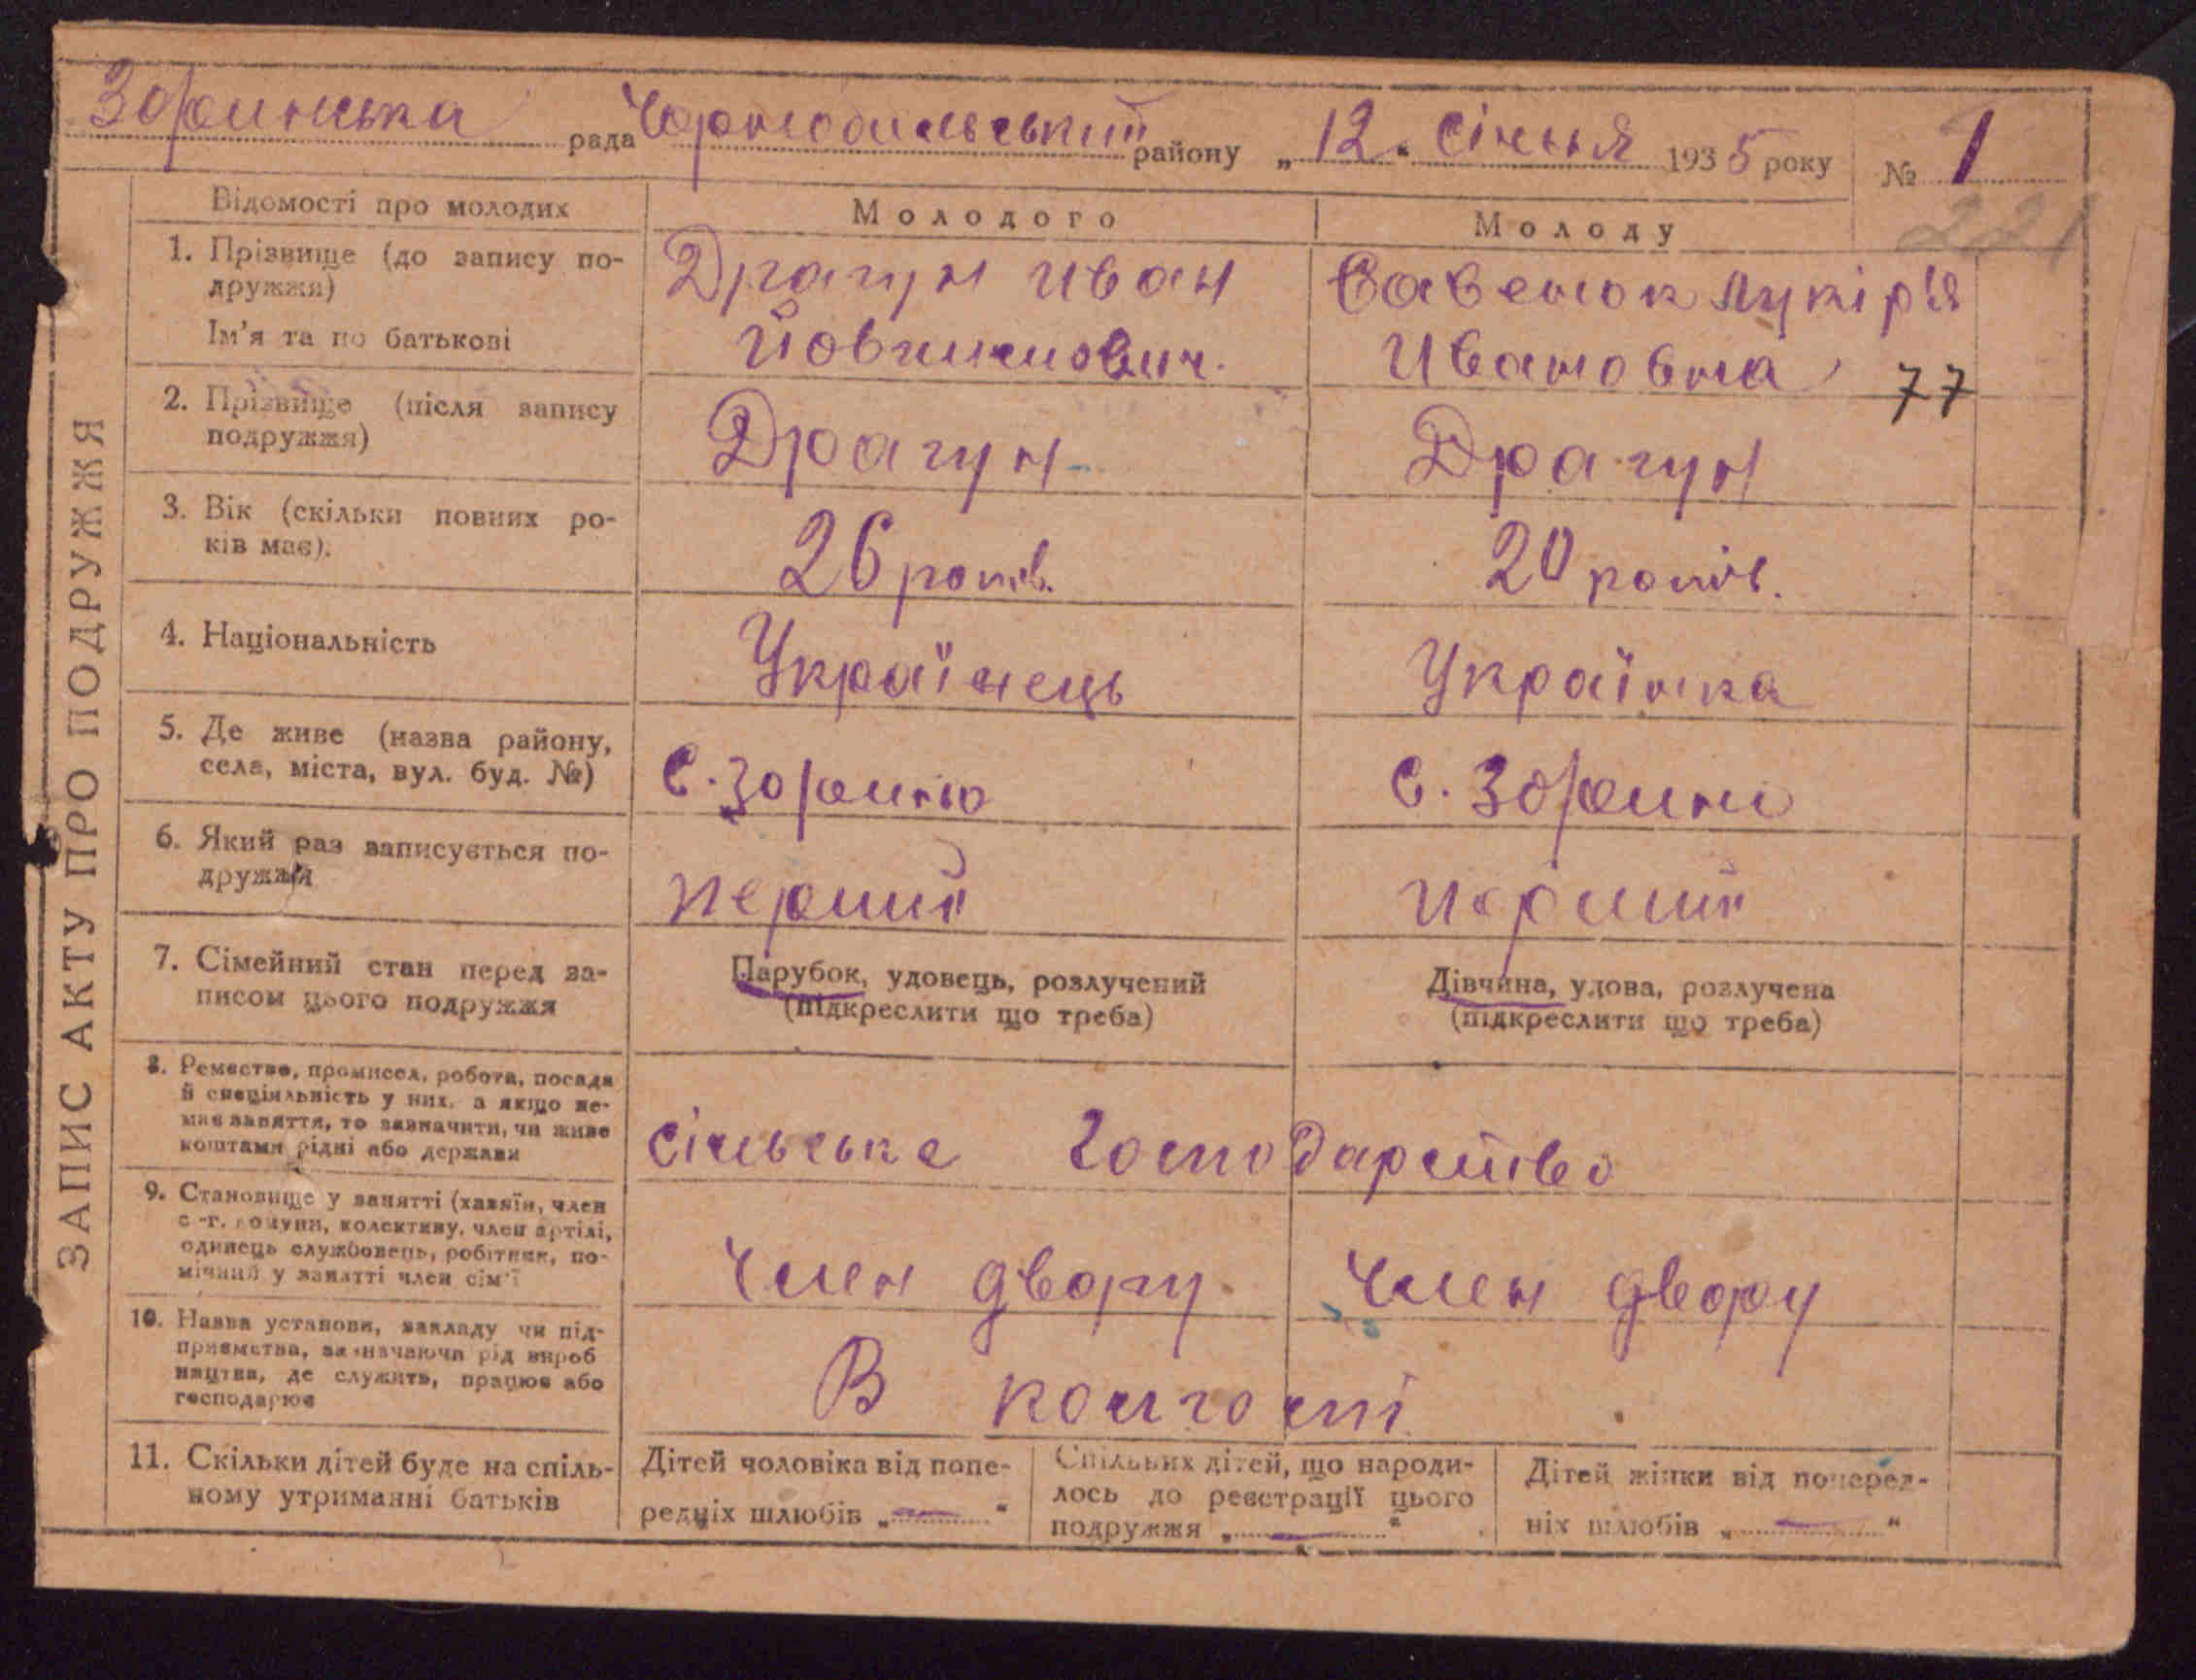 Зоринська рада Чорнобильський району „12“ Січня 1935 року № 1
221
Відомості про молодих Молодого Молоду
1. Прізвище (до запису по-
дружжя)
Драгун Иван Савенок Лукір'я
Ім'я та по батькові
Йовхимович. Ивановна 77
2. Прізвище (після запису
подружжя)
Драгун Драгун
3. Вік (скільки повних ро-
ків має).
26 років. 20 років.
4. Національність
Українець Українка
5. Де живе (назва району,
села, міста, вул. буд. №)
С. Зорино С. Зорини
6. Який раз записується по-
дружжя
перший перший
7. Сімейний стан перед за-
писом цього подружжя
Парубок, удовець, розлучений
(підкреслити що треба)
Дівчина, удова, розлучена
(підкреслити що треба)
8. Ремество, промисел, робота, посада
й спеціяльність у них, а якщо не-
має заняття, то зазначити, чи живе
коштами рідні або держави
сільське господарство
9. Становище у занятті (хазяїн, член
с.-г. комуни, колективу, член артілі,
одинець службовець, робітник, по-
мічний у занятті член сім'ї
Член двору Член двору
10. Назва установи, закладу чи під-
приємства, зазначаючи рід вироб
ництва, де служить, працює або
господарює
В колгоспі
11. Скільки дітей буде на спіль-
ному утриманні батьків
Дітей чоловіка від попе-
редніх шлюбів „ — “
Спільних дітей, що народи-
лось до реєстрації цього
подружжя „ — “
Дітей жінки від поперед-
ніх шлюбів „ — “
ЗАПИС АКТУ ПРО ПОДРУЖЖЯ